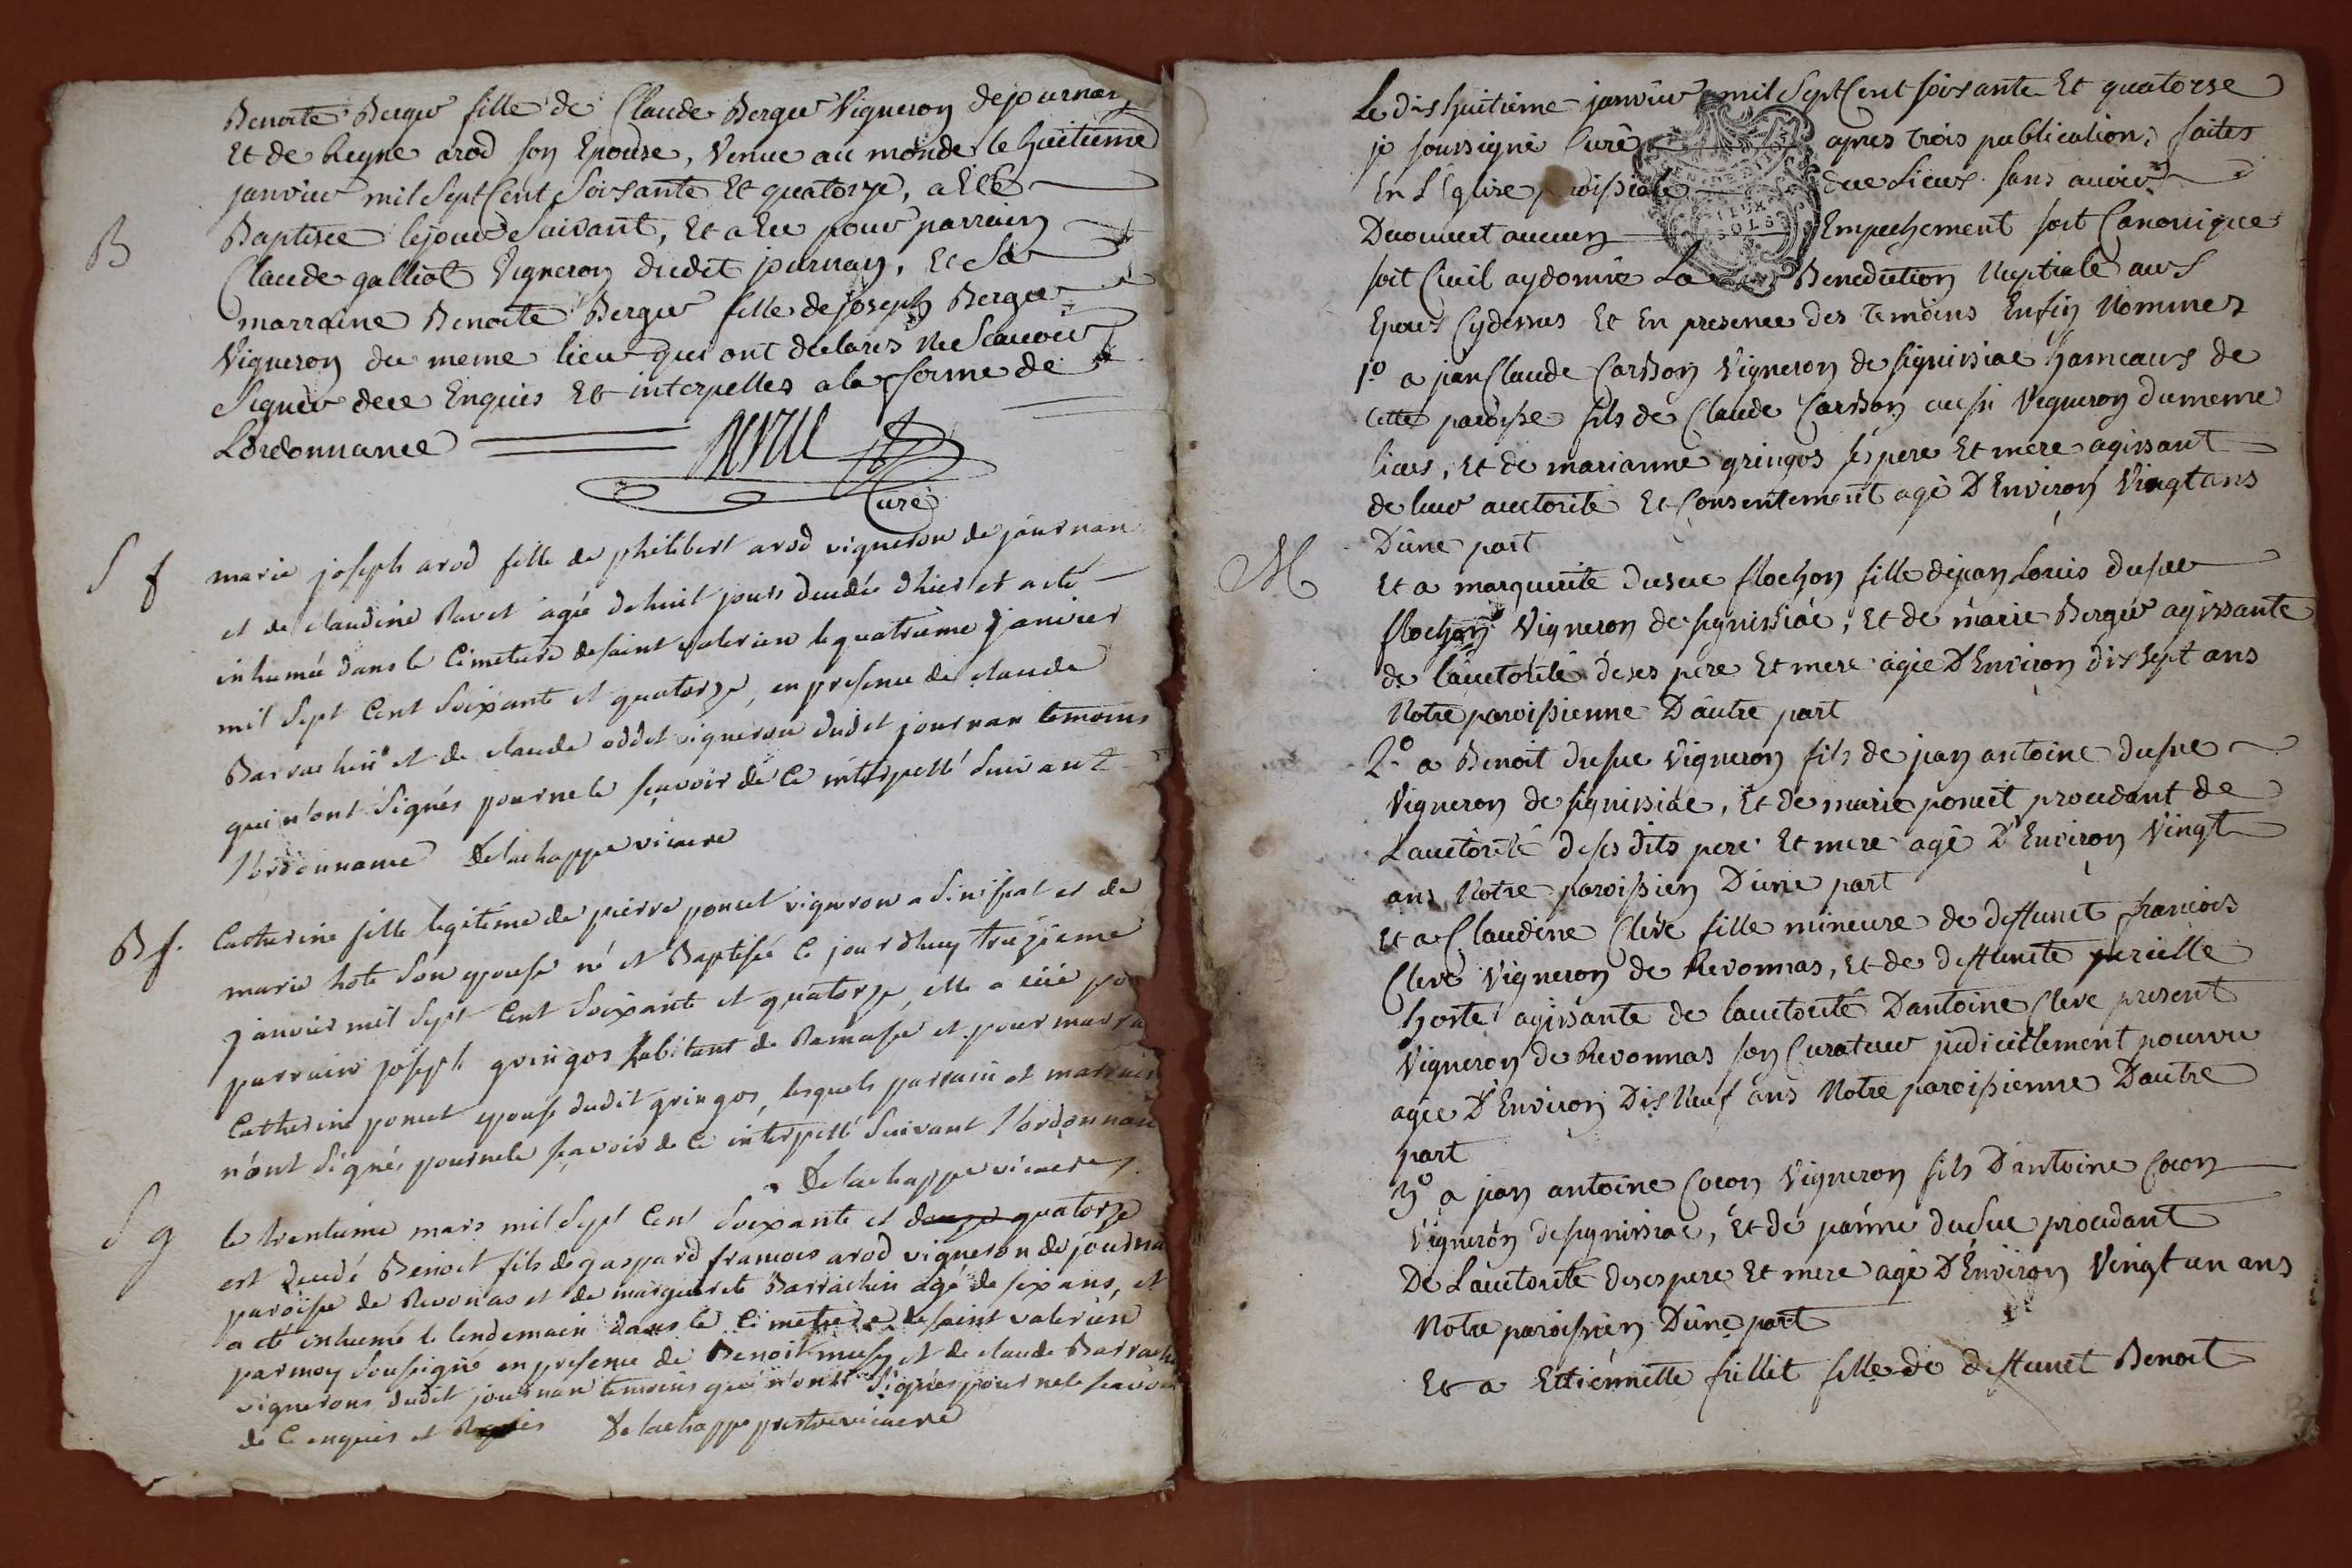 Benoite Berger fille de Claude Berger Vigneron de journan
Et de Reyne arod son Epouse, Venue au monde le huitieme
janvier mil Sept Cent Soisante Et quatorze, a Eté
B
Baptisée le jour Suivant, Et a Eu pour parrain
Claude galliot Vigneron dudit journan, Et Sa
marraine Benoite Berger fille de joseph Berger
Vigneron du meme lieu qui ont declarés ne Scavoir
Signer de ce Enquis Et interpellés a la forme de
L'ordonnance
Curé
S f
marie joseph arod fille de philibert arod vigneron de journan
et de claudine Ravet agée de huit jours decedée d'hier et a eté
inhumée dans le Cimetiere de saint valerien le quatrieme janvier
mil Sept Cent Soixante et quatorze, en presence de claude
Barrachin et de claude oddet vigneron dudit journan temoins
qui n'ont Signés pour ne le sçavoir de Ce interpellé Suivant
l'ordonnance Delachappe vicaire
B f.
Catherine fille legitime de pierre poncet vigneron a Sinissiat et de
marie hote Son epouse né et Baptisée Ce jourdhuy treizieme
janvier mil Sept Cent Soixante et quatorze, elle a eüe po
parrain joseph gringos habitant de Ramasse et pour marra
Catherine poncet epouse dudit gringos, lesquels parrain et marrain
n'ont Signés pour ne le sçavoir de Ce interpellé Suivant l'ordonnan
Delachappe vicaire
S g
le trentieme mars mil Sept Cent Soixante et douze quatorze
est decedé Benoit fils de gaspard francois arod vigneron de journa
paroisse de Revonas et de marguerite Barrachin agé de six ans, et
a eté inhumé le lendemain dans le Cimetiere de saint valerien
par moy Soussigné en presence de Benoit et de claude Barrach
vignerons dudit journan temoins qui n'ont Signés pour ne le scavoi
de Ce enquis et Requis Delachappe prestre vicaire
Le dis huitieme janvier mil Sept Cent soisante Et quatorse
je soussigné Curé apres trois publications faites
En L'Eglise paroissiale due Lieus sans avoir
Decouvert aucun Empechement soit Canonique
soit Civil ay donné La Benediction Nuptiale aux
Epoux Cydessus Et En presence des temoins Enfin Nommés
1º a jan Claude Carsson Vigneron de signissiac hameaus de
cette paroisse fils de Claude Carsson aussi Vigneron du meme
lieus, Et de marianne gringos ses pere Et mere agissant
de leur auctorité Et Consentement agé D'Environ Vingt ans
D'une part
M
Et a marguerite dusuc flochon fille de jan Louis dusuc
flochon Vigneron de signissiac, Et de marie Berger agissante
de l'auctorité de ses pere Et mere agée D'Environ dix sept ans
Notre paroissienne D'autre part
2º a Benoit dusuc Vigneron fils de jan antoine dusuc
Vigneron de signissiac, Et de marie poncet procedant de
L'auctorité de ses dits pere Et mere agé D'Environ Vingt
ans Notre paroissien D'une part
Et a Claudine Clere fille mineure de deffunct francois
Clere Vigneron de Revonnas, Et de deffuncte
horte agissante de l'auctorité D'antoine Clere present
Vigneron de Revonnas son Curateur judiciellement pourvu
agée D'Environ Dis Neuf ans Notre paroissienne D'autre
part
3º a jan antoine Cocon Vigneron fils D'antoine Cocon
Vigneron de signissiac, Et de janne dusuc procedant
De L'auctorité de ses pere Et mere agé D'Environ Vingt un ans
Notre paroissien D'une part
Et a Ettiennette fille de deffunct Benoit